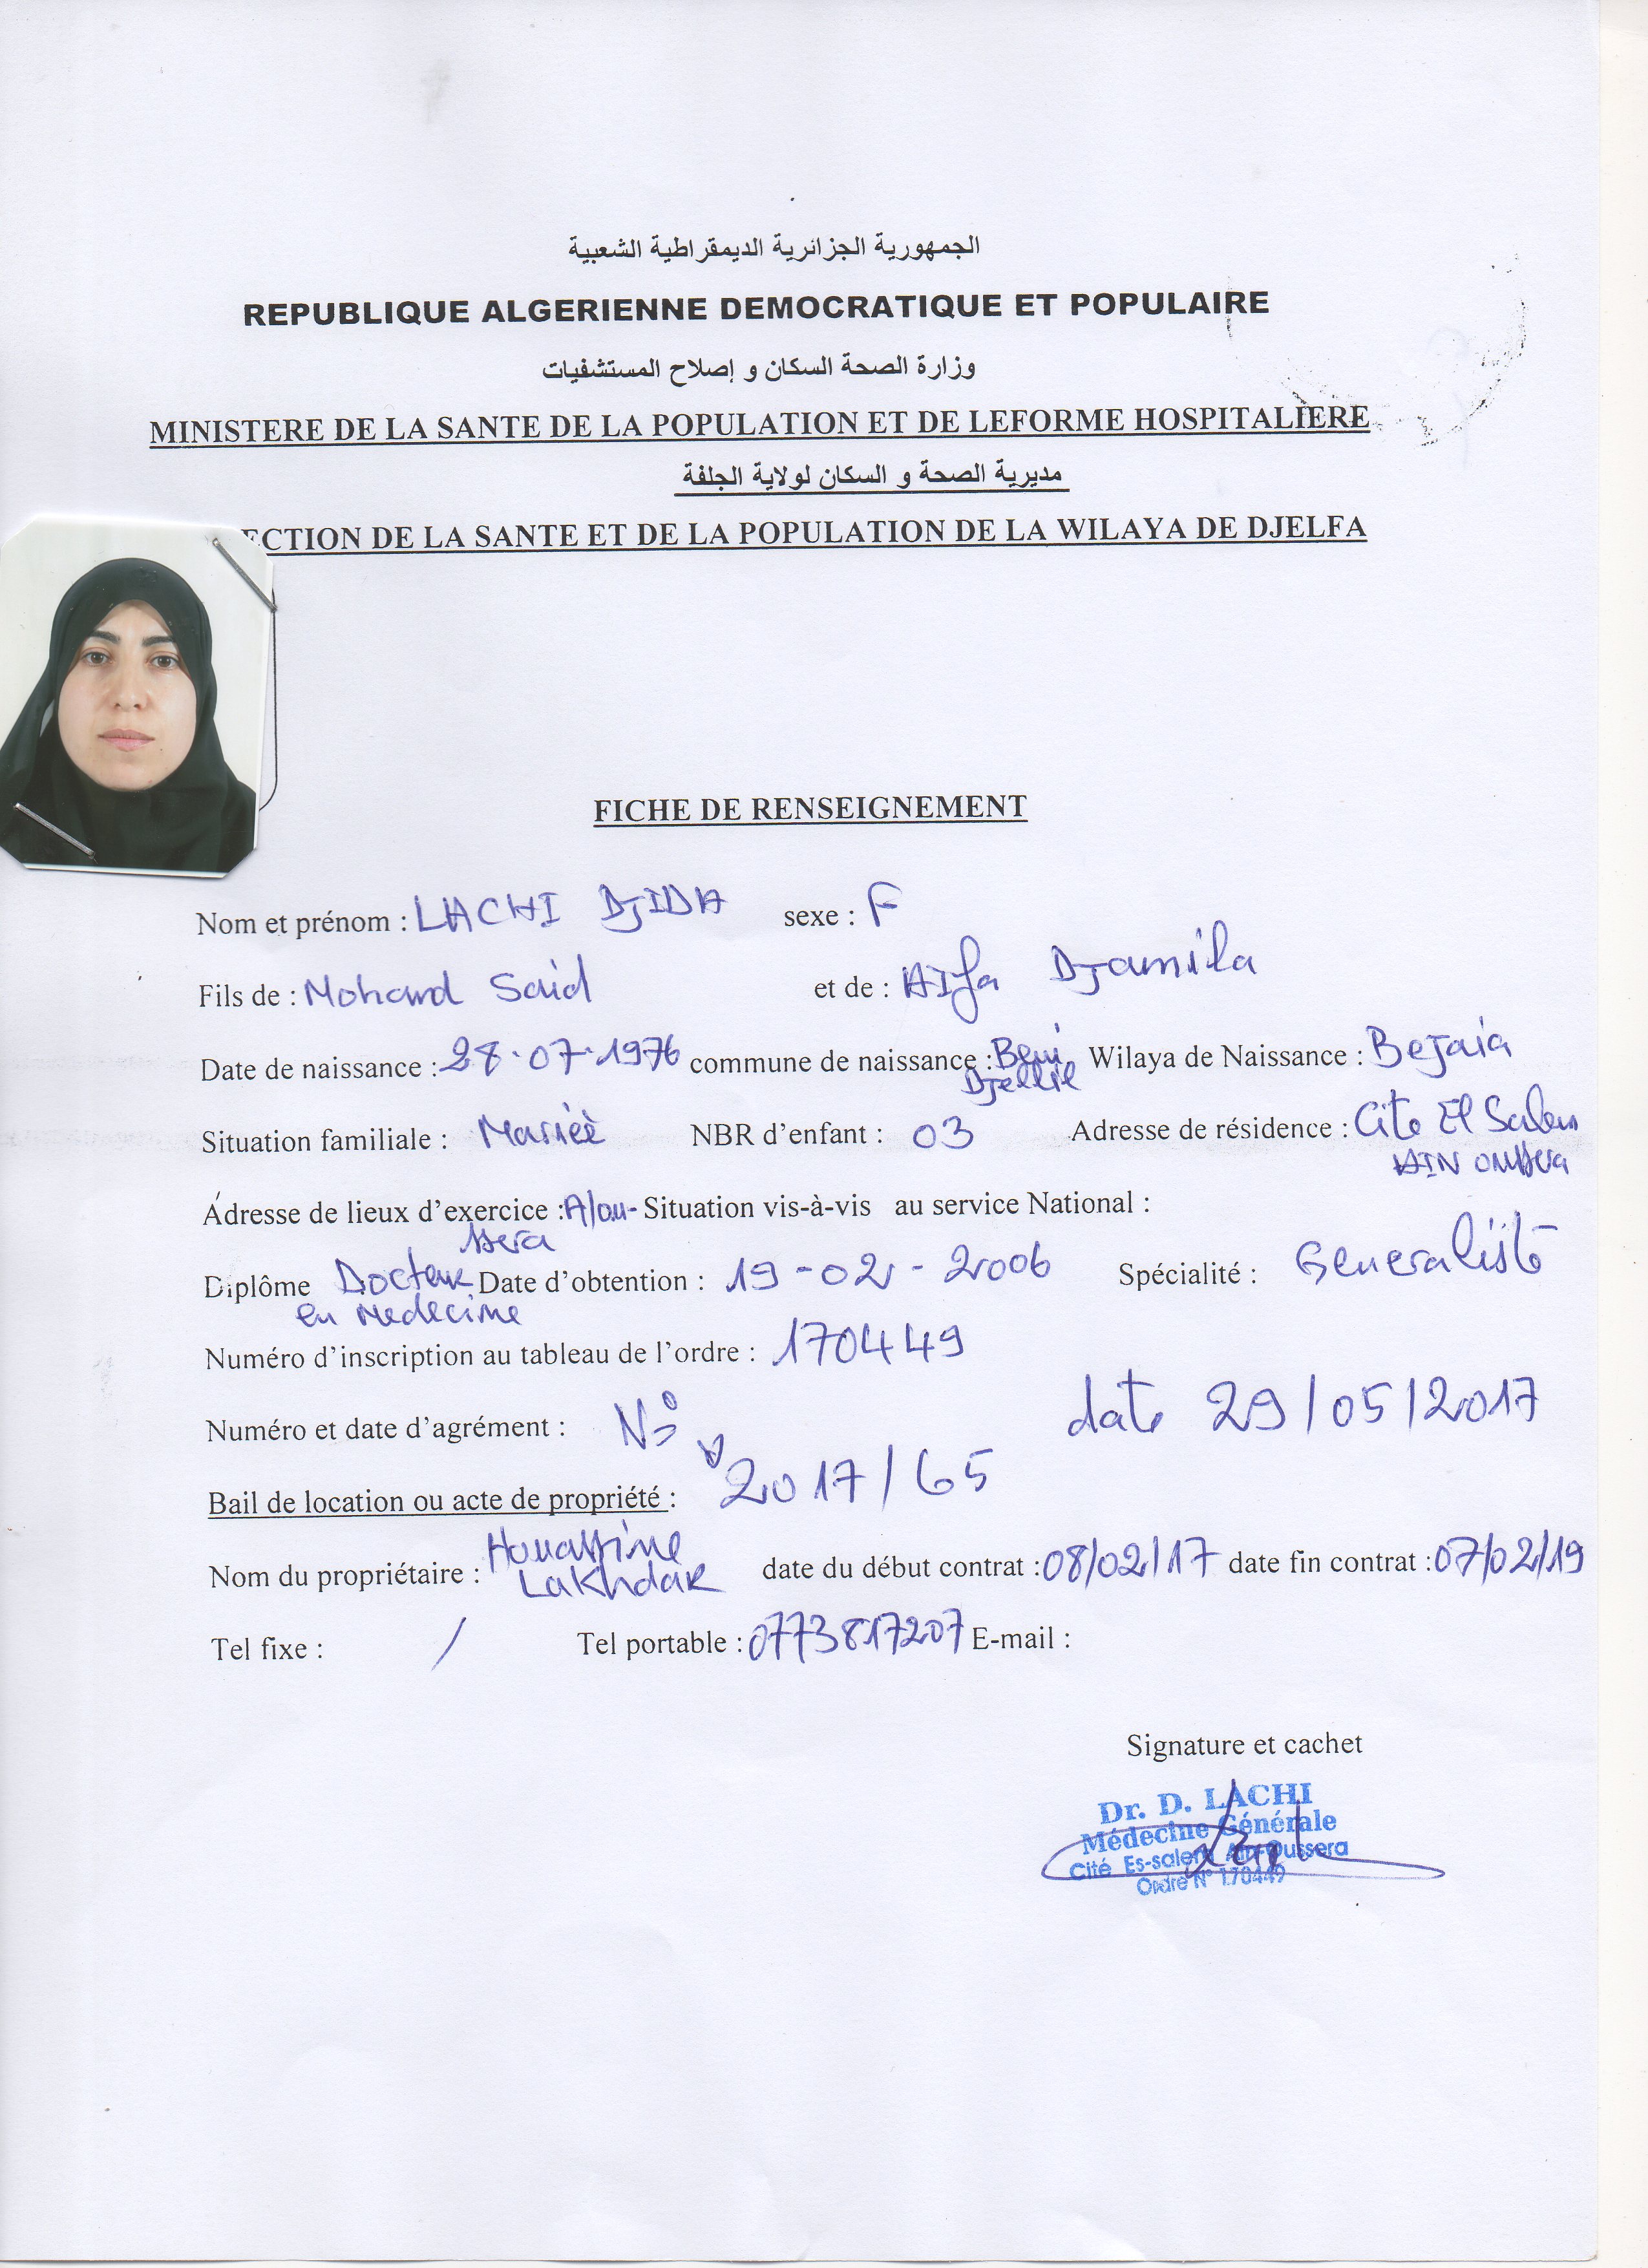 الجمهورية الجزائرية الديمقراطية الشعبية
REPUBLIQUE ALGERIENNE DEMOCRATIQUE ET POPULAIRE
وزارة الصحة السكان و إصلاح المستشفيات
MINISTERE DE LA SANTE DE LA POPULATION ET DE LEFORME HOSPITALIERE
مديرية الصحة و السكان لولاية الجلفة
ECTION DE LA SANTE ET DE LA POPULATION DE LA WILAYA DE DJELFA
FICHE DE RENSEIGNEMENT
Nom et prénom : LACHI DJIDA sexe : F
Fils de : Mohand Said et de : Djamila
Date de naissance : 28.07.1976 commune de naissance : Beni Djellil Wilaya de Naissance : BeJaia
Situation familiale : Mariéè NBR d'enfant : 03 Adresse de résidence : Cite El Salem
AIN oussera
Adresse de lieux d'exercice : A/ou- Situation vis-à-vis au service National :
ssera
Diplôme Docteur Date d'obtention : 19-02-2006 Spécialité : Generaliste
en Medecine
Numéro d'inscription au tableau de l'ordre : 170449
Numéro et date d'agrément : N° date 29/05/2017
Bail de location ou acte de propriété : 2017/65
Nom du propriétaire : Lakhdar date du début contrat : 08/02/17 date fin contrat : 07/02/19
Tel fixe : / Tel portable : 0773817207 E-mail :
Signature et cachet
Dr. D. LACHI
Médecine Générale
Cité Es-salem Ain-Oussera
Ordre N° 170449